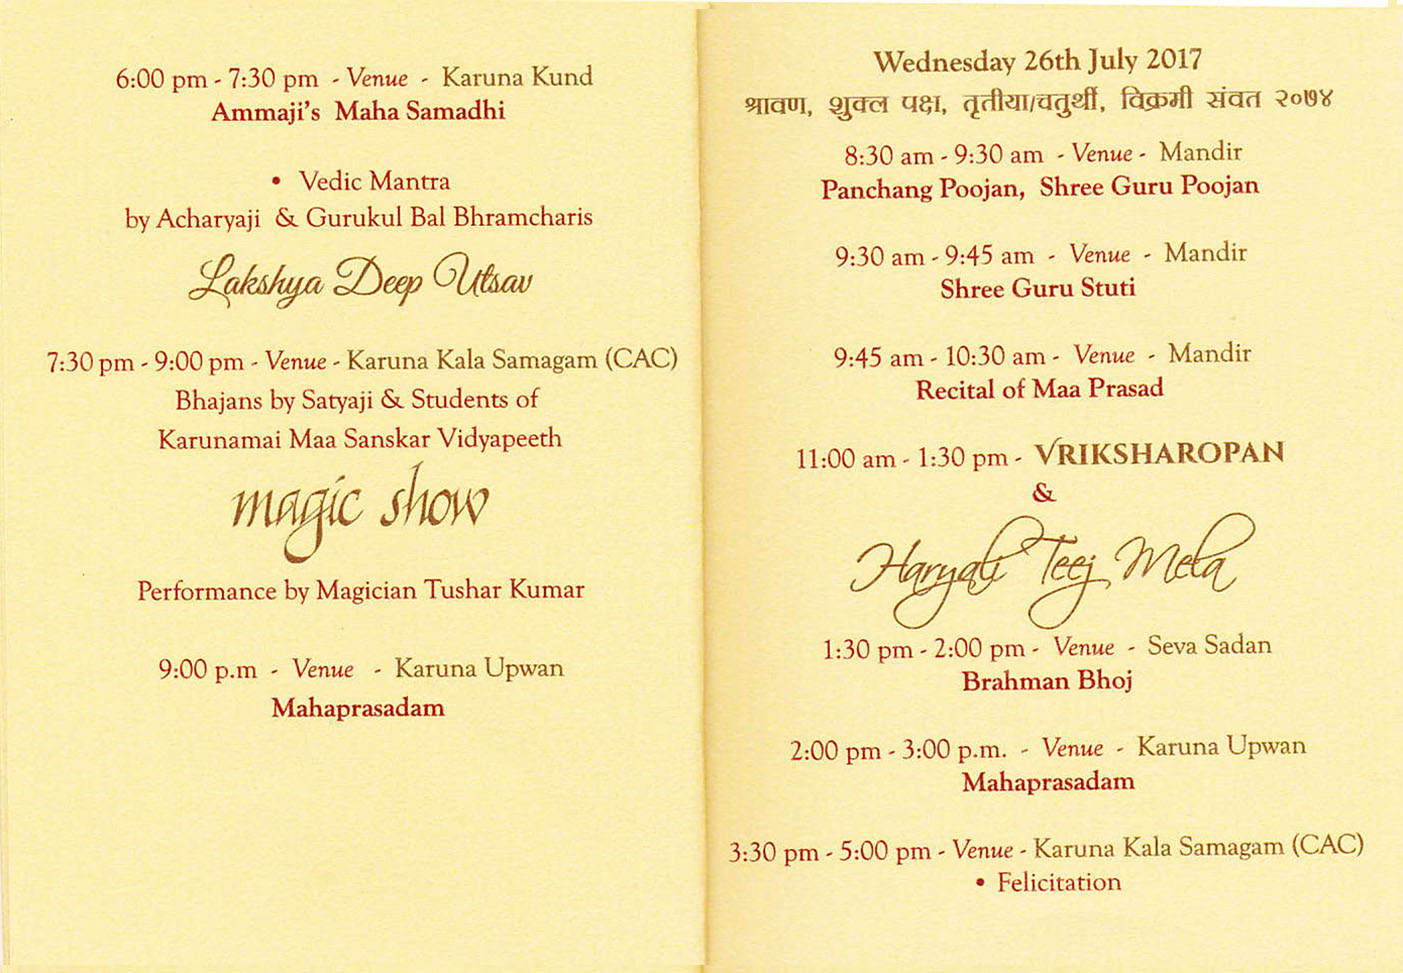 6:00 pm - 7:30 pm - Venue - Karuna Kund
Ammaji's Maha Samadhi
• Vedic Mantra
by Acharyaji & Gurukul Bal Bhramcharis
Lakshya Deep Utsav
7:30 pm - 9:00 pm - Venue - Karuna Kala Samagam (CAC)
Bhajans by Satyaji & Students of
Karunamai Maa Sanskar Vidyapeeth
magic show
Performance by Magician Tushar Kumar
9:00 p.m - Venue - Karuna Upwan
Mahaprasadam
Wednesday 26th July 2017
श्रावण, शुक्ल पक्ष, तृतीया/चतुर्थी, विक्रमी संवत २०७४
8:30 am - 9:30 am - Venue - Mandir
Panchang Poojan, Shree Guru Poojan
9:30 am - 9:45 am - Venue - Mandir
Shree Guru Stuti
9:45 am - 10:30 am - Venue - Mandir
Recital of Maa Prasad
11:00 am - 1:30 pm - VRIKSHAROPAN
&
Haryali Teej Mela
1:30 pm - 2:00 pm - Venue - Seva Sadan
Brahman Bhoj
2:00 pm - 3:00 p.m. - Venue - Karuna Upwan
Mahaprasadam
3:30 pm - 5:00 pm - Venue - Karuna Kala Samagam (CAC)
• Felicitation